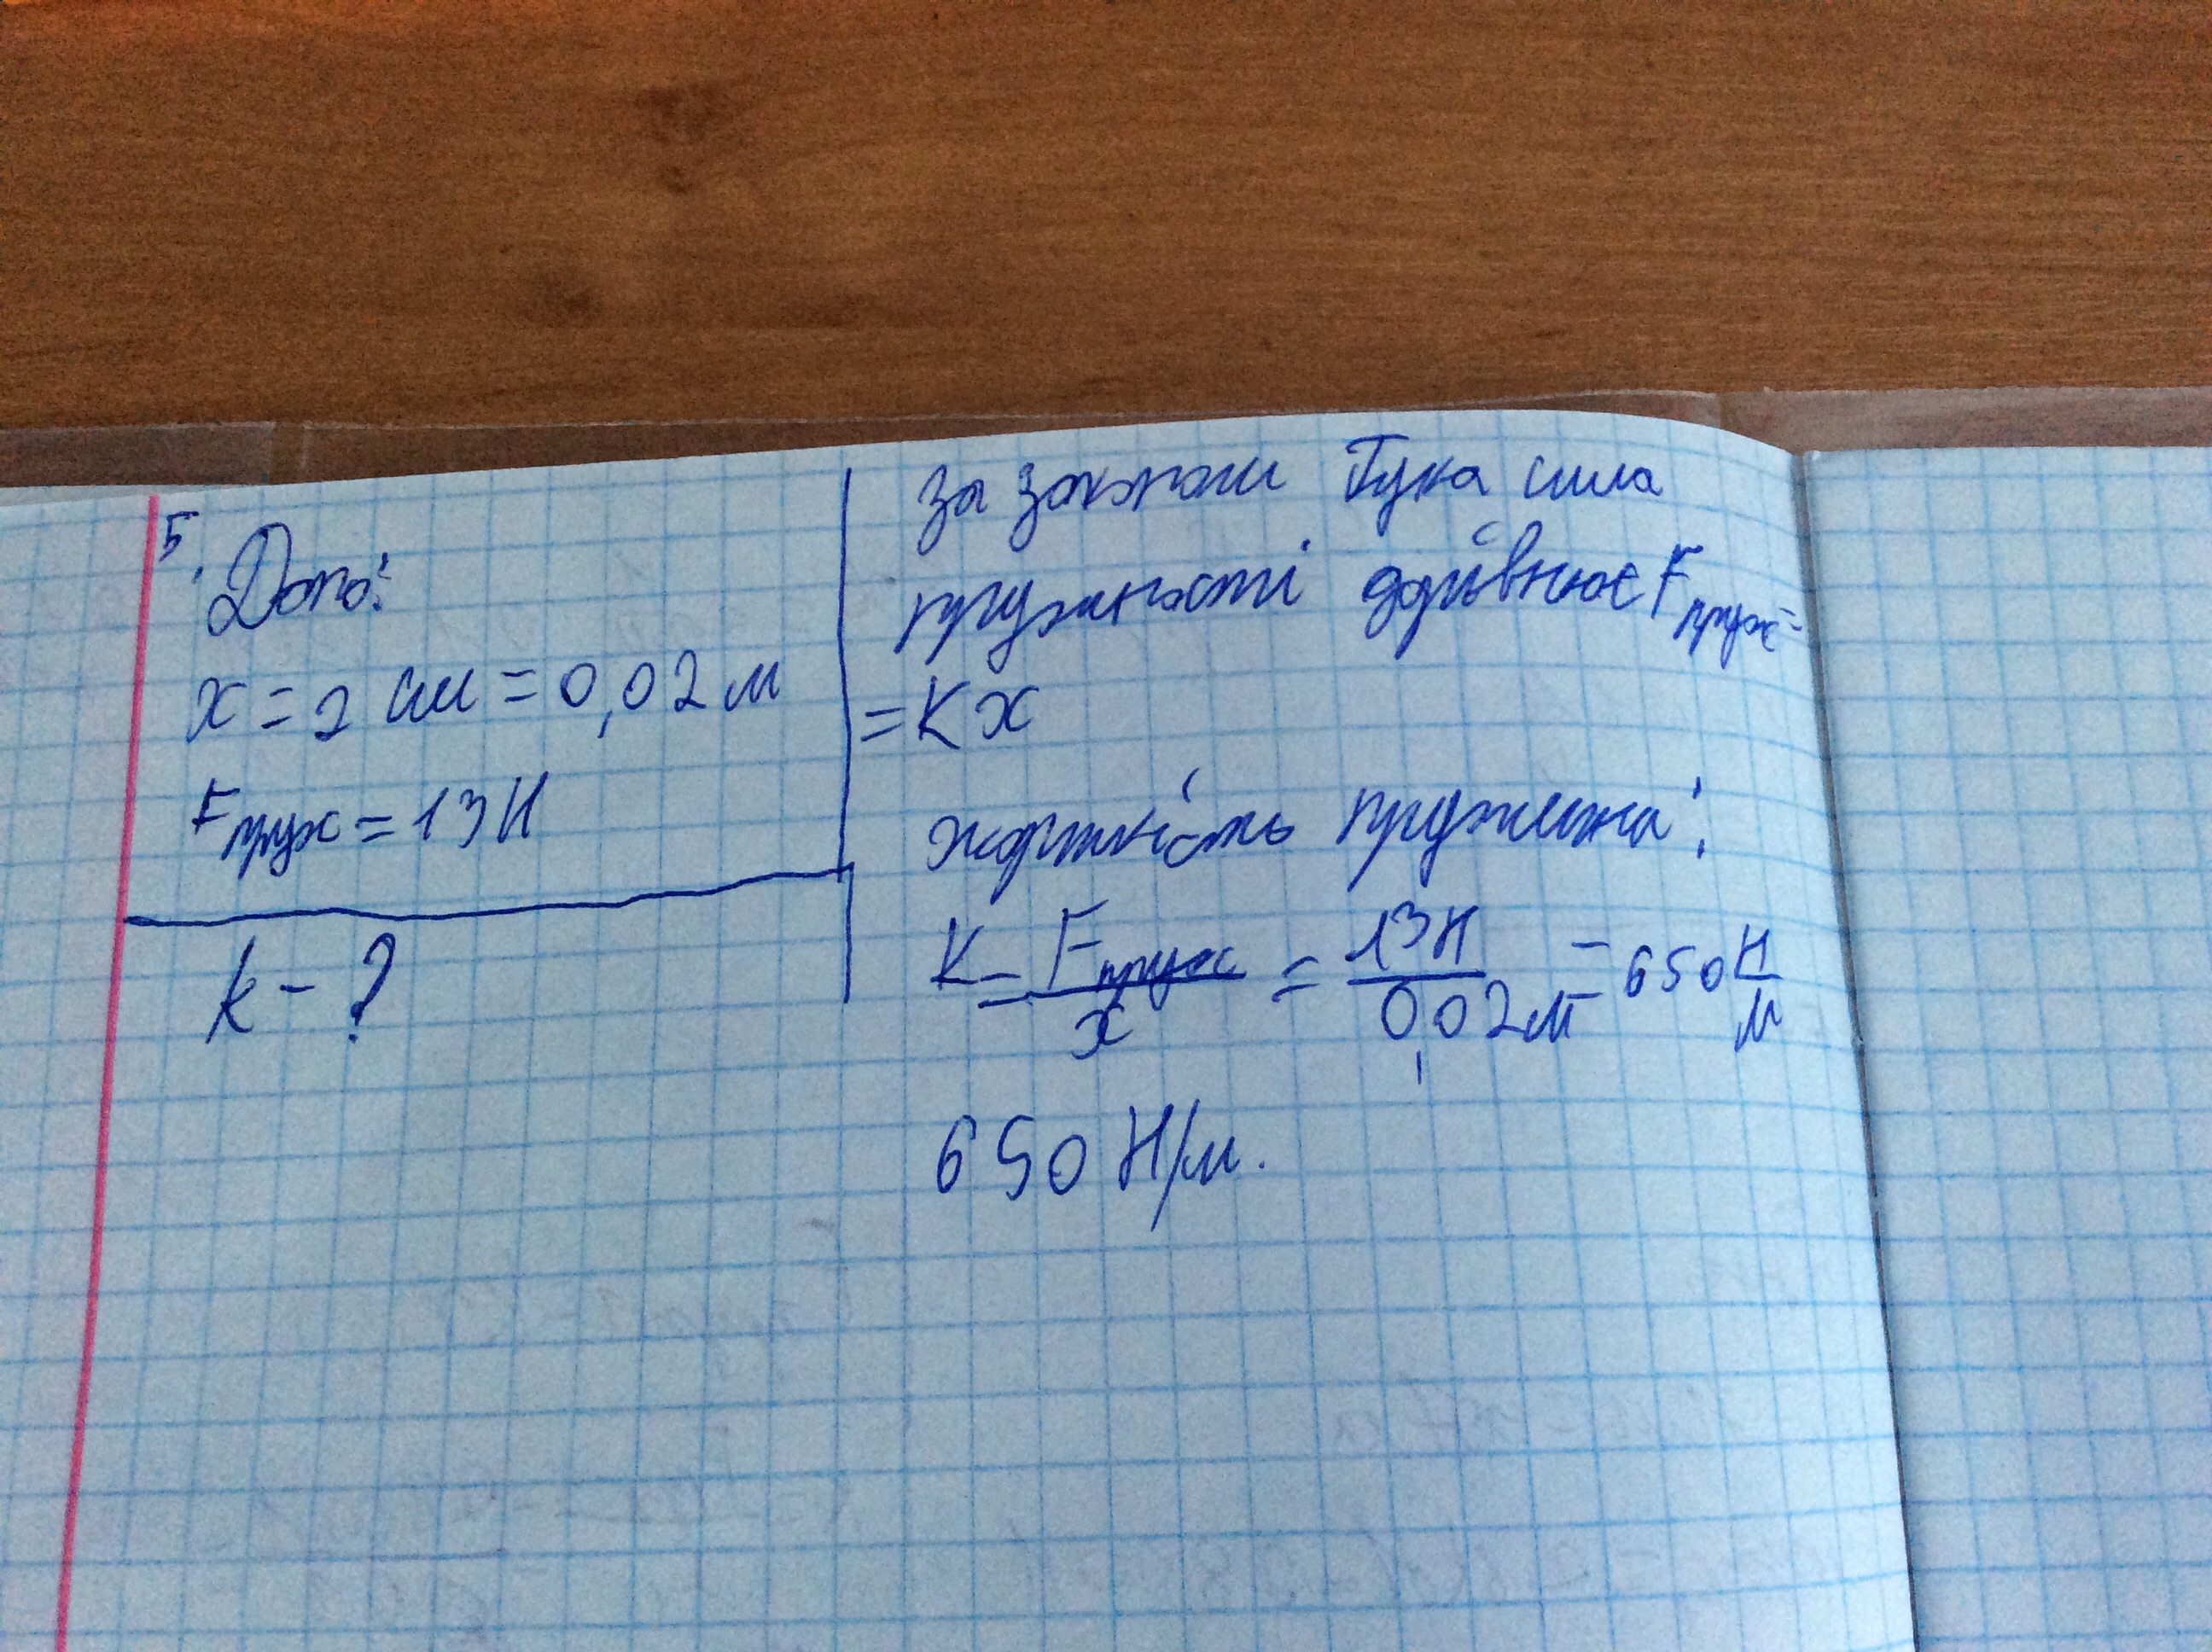 5.
Дано:
x = 2 см = 0,02 м
Fпруж = 13 Н
k - ?
За законом Гука сила
пружності дорівнює Fпруж =
= Kx
жорткість пружина:
K = Fпруж/x = 13Н/0,02м = 650 Н/м
650 Н/м.